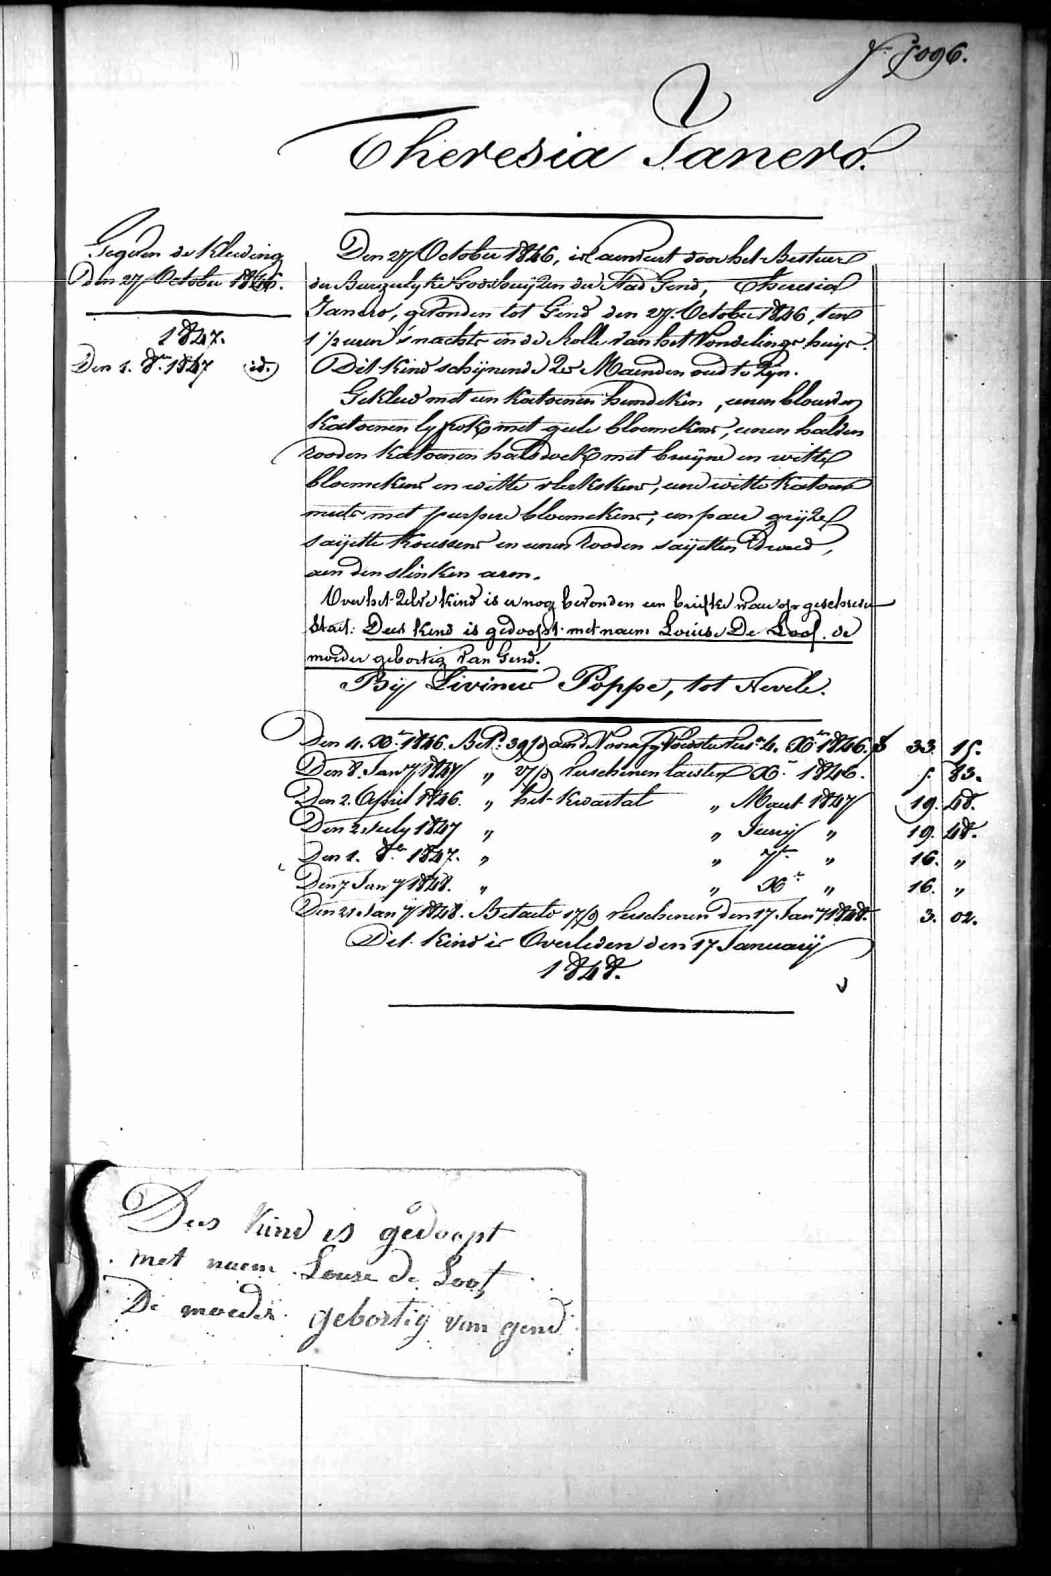 f. 1096.
Theresia Janero.
Gegeven de Kleeding
Den 27 October 1846.
1847.
Den 1. 8.er 1847 id.
Den 27 October 1846, is aenveert door het Bestuer
der Burgerlyke Godshuijzen der Stad Gend, Theresia
Janero, gevonden tot Gend den 27. October 1846, ten
1 1/2 uren 's nachts in de Rolle van het Vondelings huijs.
Dit kind schijnende 2 Maenden oud te zijn.
Gekleed met een katoenen hemdeken, eenen blauwen
katoenen lyfrok met geele bloemekens, eenen halven
rooden katoenen halsdoek met bruijne en witte
bloemekens en witte vlekskens, eene witte katoene
muts met purpere bloemekens, een paer grijze
saijette koussens en eenen rooden saijetten Draed,
aen den slinken arm.
Over het zelve kind is er nog bevonden een briefke waer op geschreven
staet: Dees kind is gedoopt met naem Louise De Loof. de
moeder gebortig van Gend.
Bij Livinus Poppe, tot Nevele.
Den 4. X.er 1846. Bet.d 39/d aend. Voorz. Voedster vers.n 4. X.er 1846. f 33. 15.
Den 8. Jan.y 1847 " 27/d verschenen laesten X.er 1846. f. 83.
Den 2. April 1846. " het kwartal " Maert 1847 19. 48.
Den 2 July 1847 " " Junij " 19. 48.
Den 1. 8.er 1847. " " 7.er " 16. "
Den 7 Jan.y 1848. " " X.er " 16. "
Den 21 Jan.y 1848. Betaeld 17/d verschenen den 17 Jan.y 1848. 3. 02.
Dit kind is Overleden den 17 Januarij
1848.
Dees kind is gedoopt
met naem Louse de Loof
De moeder gebortig van gend